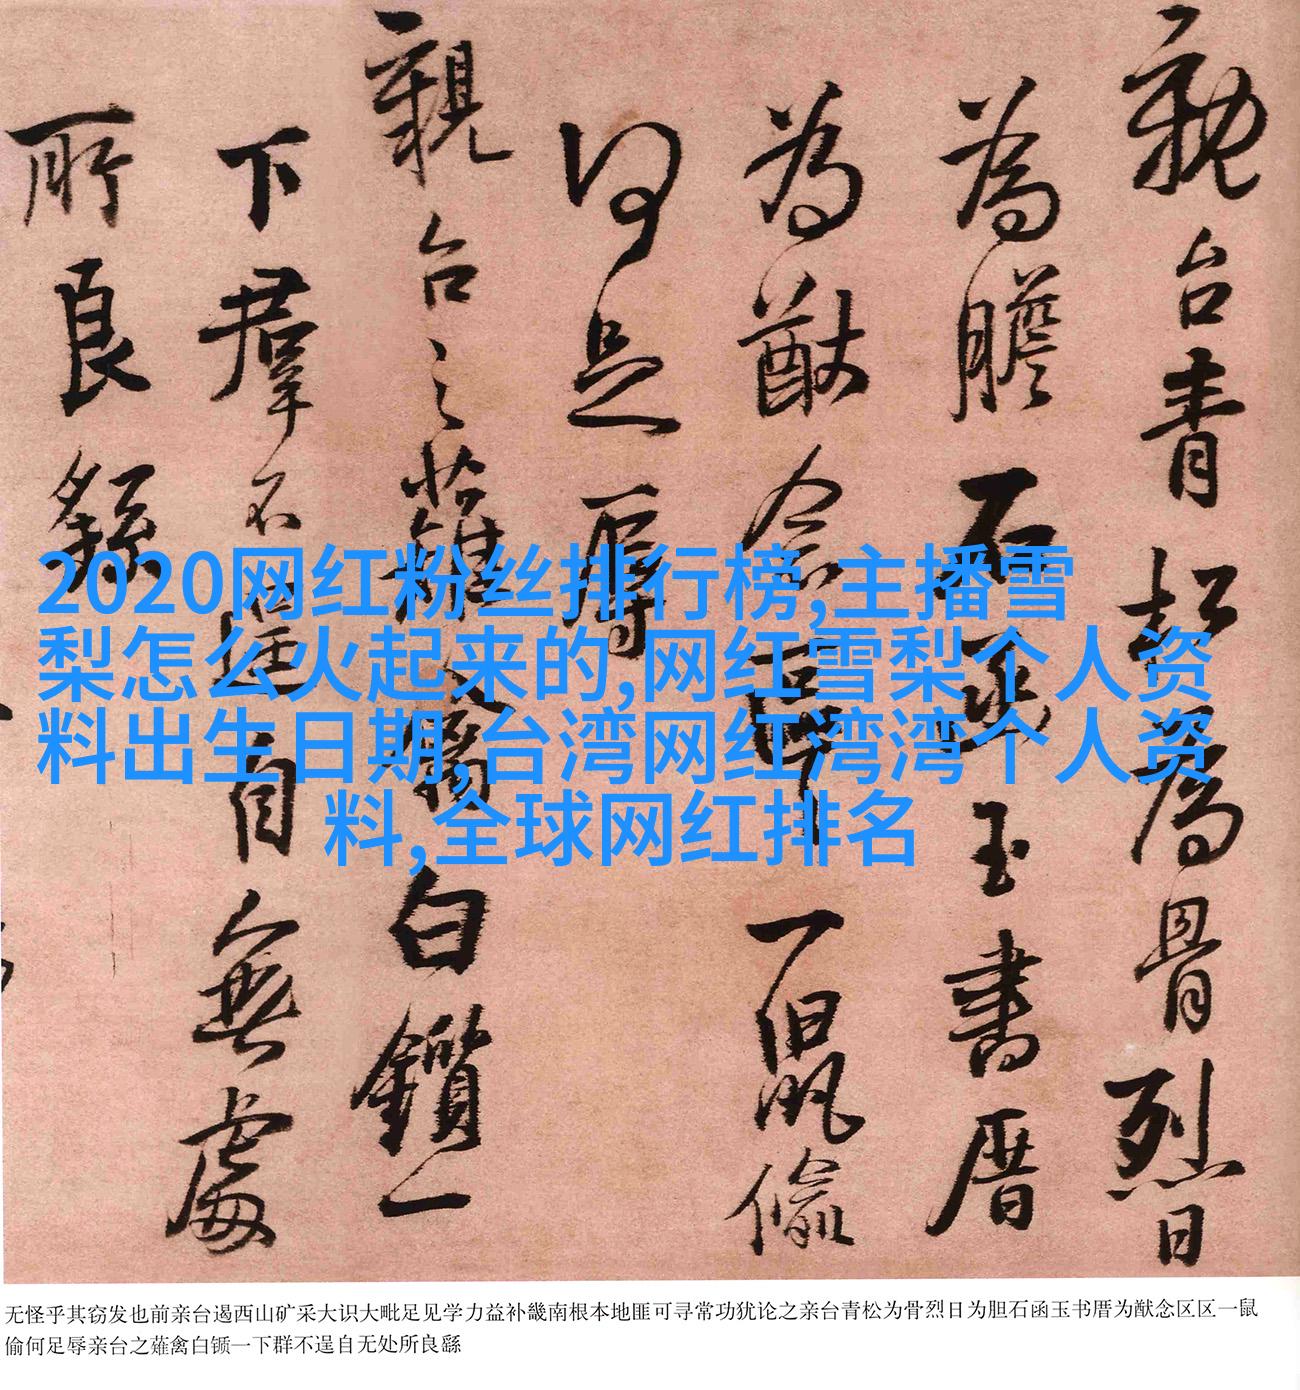 親台青松為骨烈日
為膽石函玉書厝
為猷念區區一鼠偷
何足辱
親台之薙禽白鑽一
下羣不逞自無處
所良繇
2020网红粉丝排行榜,主播雪
梨怎么火起来的,网红雪梨个人资
料出生日期,台湾网红湾湾个人资
料,全球网红排名
无怪乎其窃发也前亲台遏西山矿采大识大毗足见学力益补畿南根本地匪可寻常功犹论之亲台青松为骨烈日为胆石函玉书厝为猷念区区一鼠
偷何足辱亲台之薙禽白锧一下群不逞自无处所良繇